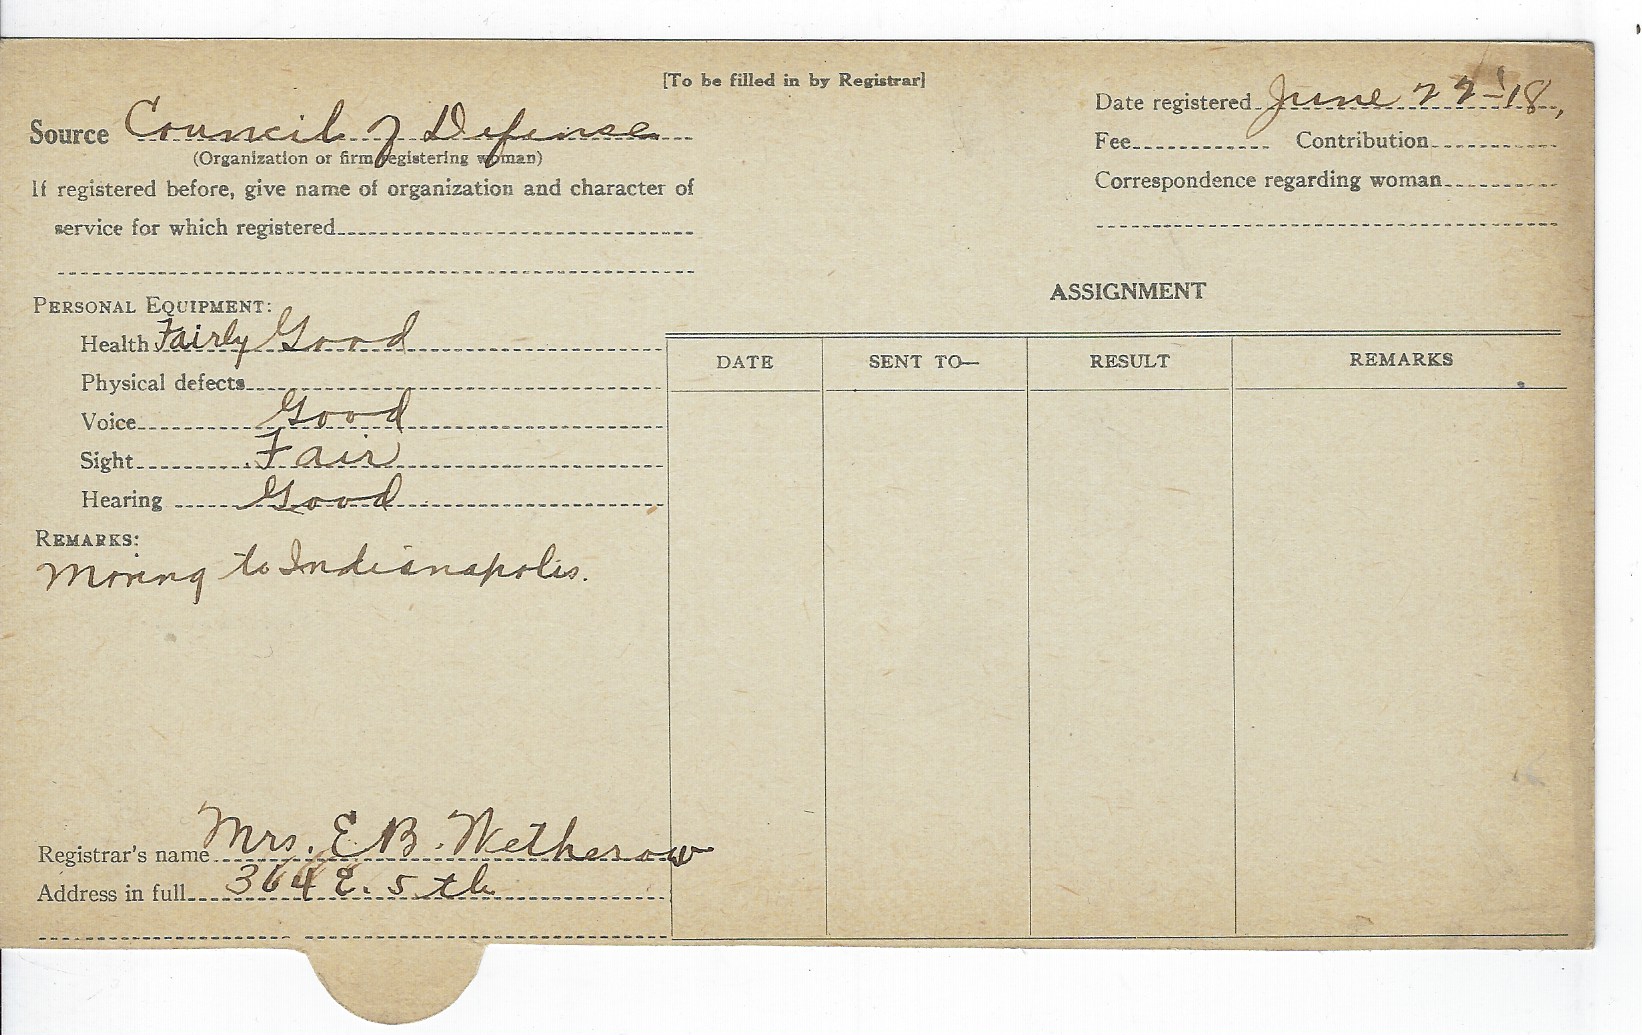 [To be filled in by Registrar]
Source Council of Defense
(Organization or firm registering woman)
If registered before, give name of organization and character of
service for which registered
Date registered June 22-'18,
Fee Contribution
Correspondence regarding woman
PERSONAL EQUIPMENT:
Health Fairly Good
Physical defects
Voice Good
Sight Fair
Hearing Good
REMARKS:
Moving to Indianapolis.
Registrar's name Mrs. E B. Wetherow
Address in full 364 E. 5th
ASSIGNMENT
DATE SENT TO— RESULT REMARKS